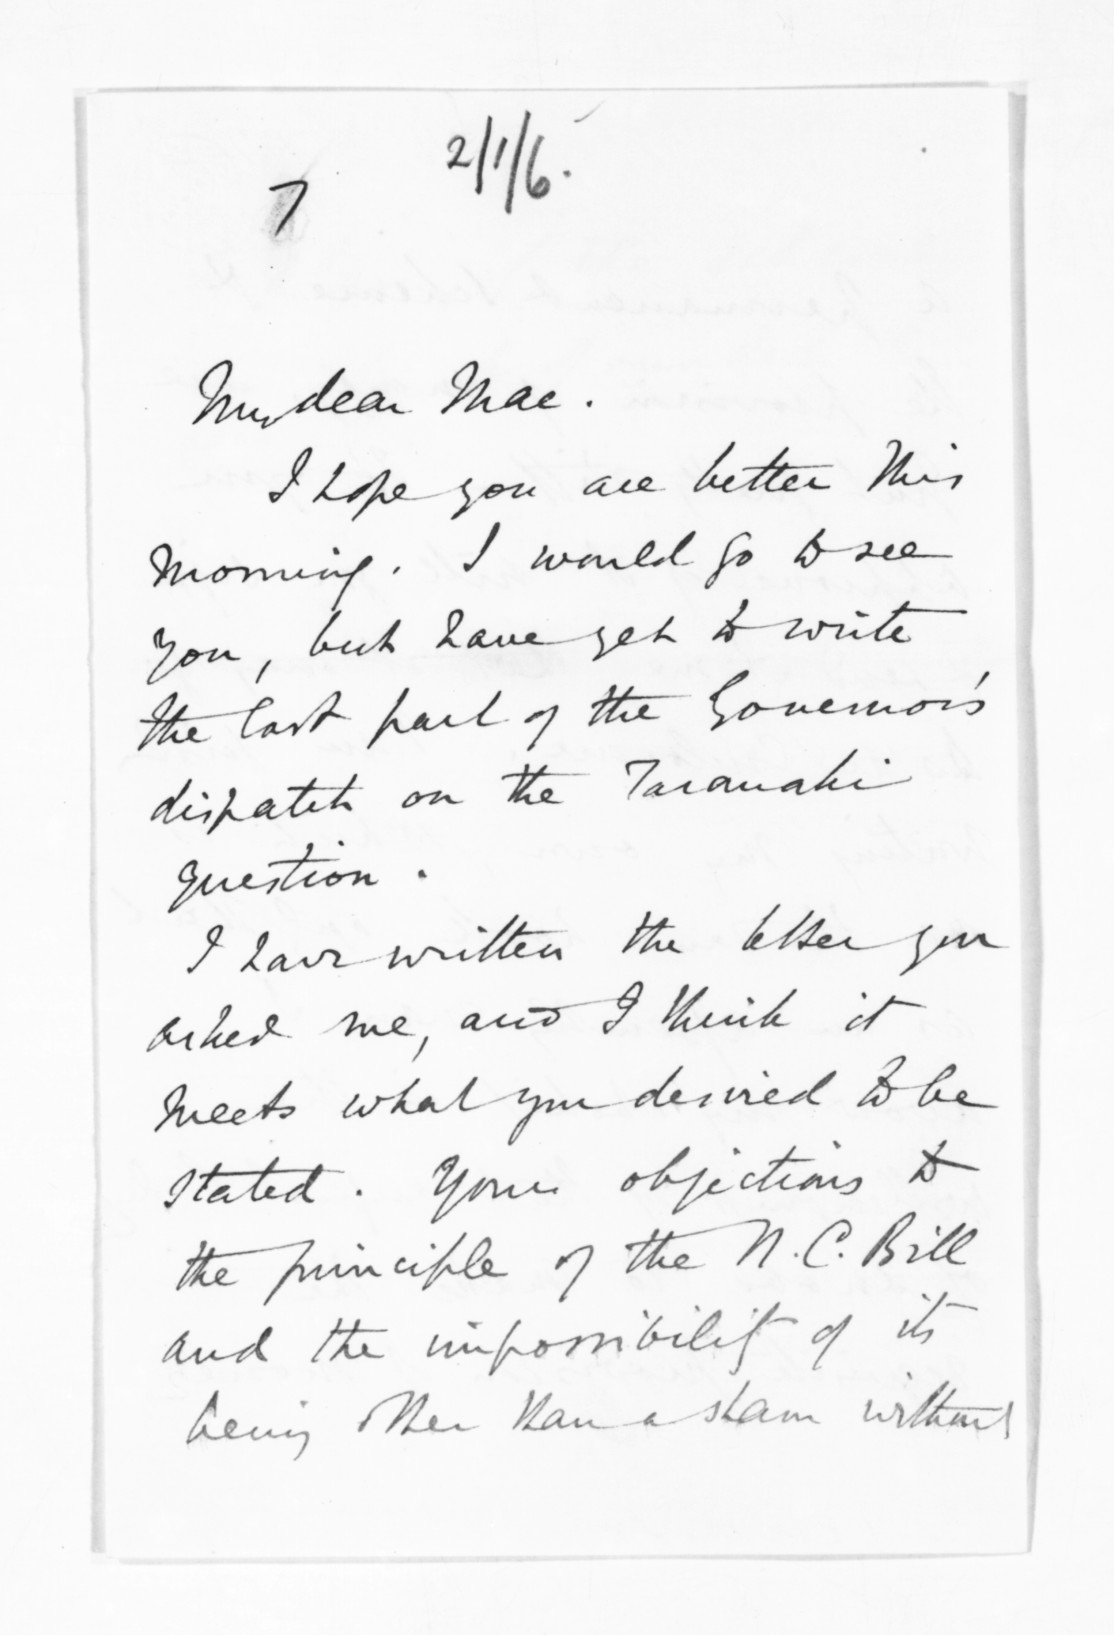 2/1/6.
7
My dear Mac.
I hope you are better this
morning. I would go to see
you, but have yet to write
the last part of the Governor's
dispatch on the Taranaki
question.
I have written the letter you
asked me, and I think it
meets what you desired to be
stated. Your objections to
the principle of the N.C. Bill
and the impossibility of its
being other than a sham without